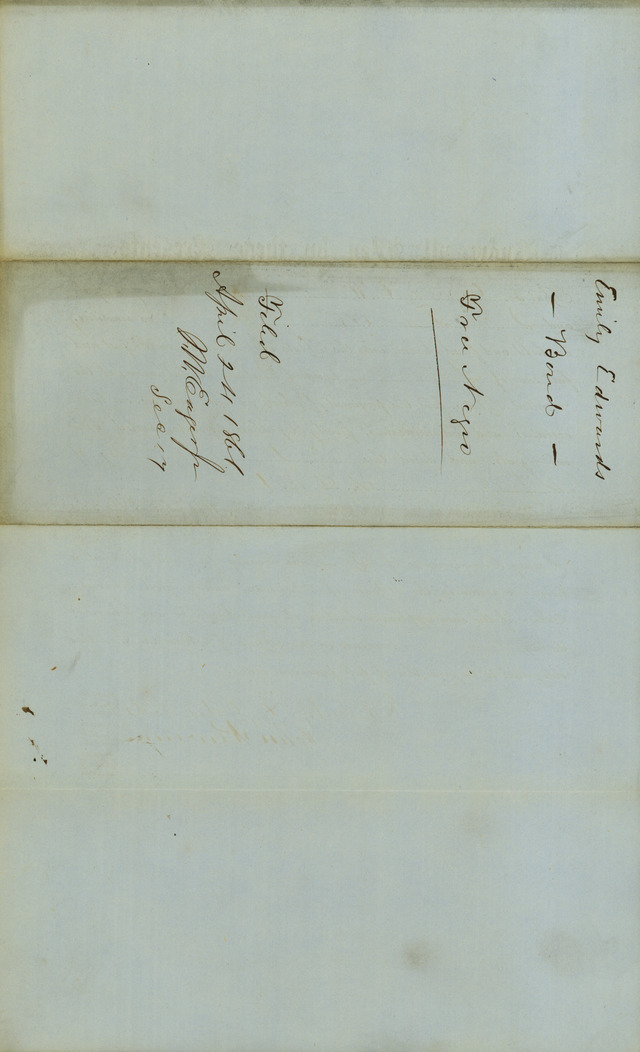 Emily Edwards
— Bond —
Free Negro
Filed
April 24 1861